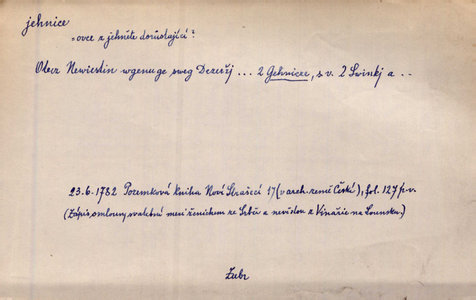 jehnice
= ovce z jehněte dorůstající?
Otecz Newiestin wgenuge sweg Dczeřj ... 2 Gehnicze, s v. 2 Swinkj a ..
23.6.1782 Pozemková kniha Nové Strašecí 17 (v arch. země České), fol. 127 p.v.
(Zápis smlouvy svatební mezi ženichem ze Srbče a nevěstou z Vinařic na Lounsku.)
Zubr